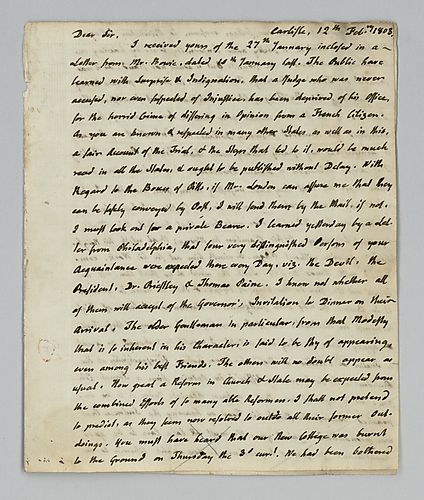 Dear Sir, Carlisle, 12th Feb.ry 1803
I received yours of the 27th January inclosed in a
Letter from Mr. dated 10th January last. The Public have
learned with Surprise & Indignation, that a Judge who was never
accused, nor even suspected of Injustice, has been deprived of his Office,
for the horrid Crime of differing in Opinion from a French Citizen.
As you are known & respected in many other States, as well as in this,
a fair Account of the Trial, & the Steps that led to it, would be much
read in all the States, & ought to be published without Delay. With
Regard to the Boxes of Pills, if Mr. London can assure me that they
can be safely conveyed by Post, I will send them by the Mail. if not,
I must look out for a private Bearer. I learned yesterday by a Let-
ter from Philadelphia, that four very distinguished Persons of your
Acquaintance were expected there every Day, viz. the Devil, the
President, Dr. Priestley & Thomas Paine. I know not whether all
of them will accept of the Governor's Invitation to Dinner on their
Arrival. The older Gentleman in particular, from that Modesty
that is so inherent in his Character, is said to be shy of appearing
even among his best Friends. The others will no doubt appear as
usual. How great a Reform in Church & State may be expected from
the combined Efforts of so many able Reformers, I shall not pretend
to predict, as they seem now resolved to outdo all their former Out-
doings. You must have heard that our New College was burnt
to the Ground on Thursday the 3d curt. We had been bothered